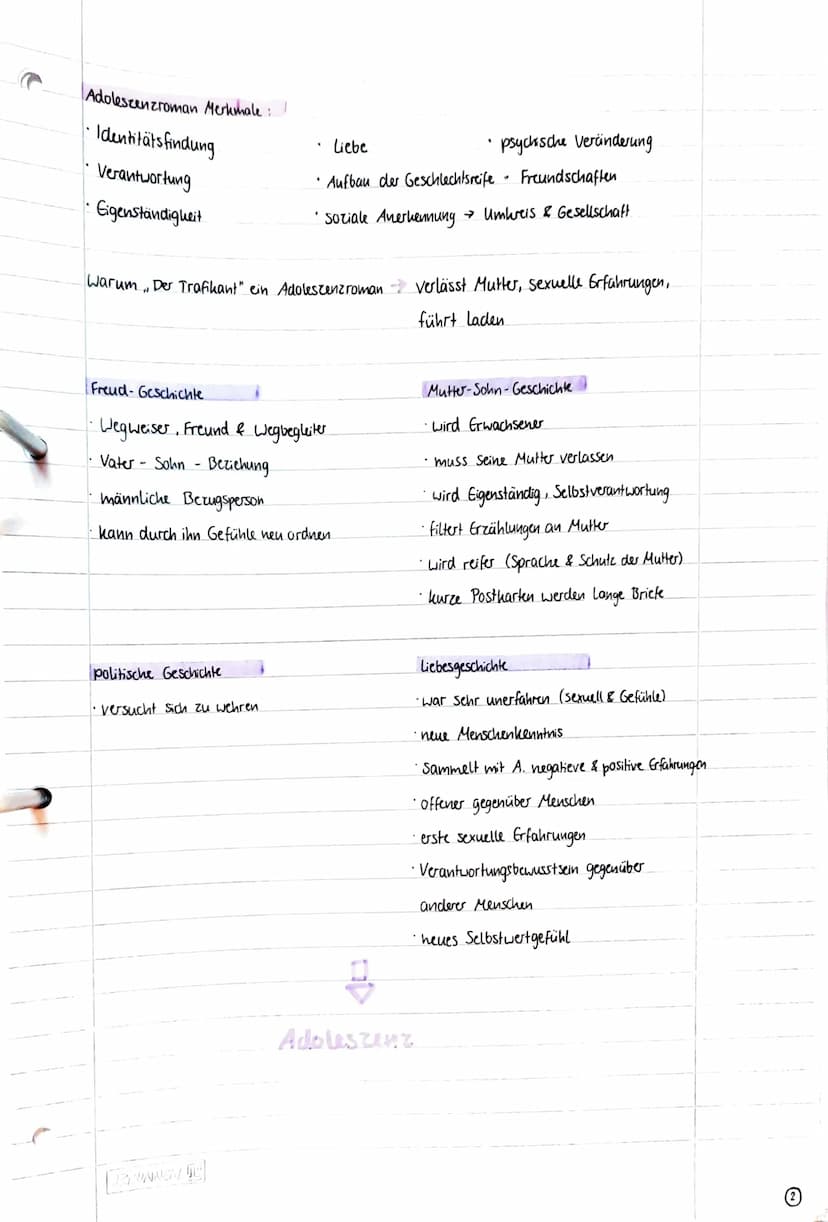 Adoleszenzroman Merkmale:
· Identitätsfindung · Liebe · psychische Veränderung
· Verantwortung · Aufbau der Geschlechtsreife · Freundschaften
· Eigenständigkeit · soziale Anerkennung → Umkreis & Gesellschaft
Warum „Der Trafikant" ein Adoleszenzroman → verlässt Mutter, sexuelle Erfahrungen,
führt laden
Freud-Geschichte
· Wegweiser, Freund & Wegbegleiter
· Vater - Sohn - Beziehung
· männliche Bezugsperson
· kann durch ihn Gefühle neu ordnen
Mutter-Sohn-Geschichte
· wird Erwachsener
· muss seine Mutter verlassen
· wird Eigenständig, Selbstverantwortung
· filtert Erzählungen an Mutter
· wird reifer (Sprache & Schutz der Mutter)
· kurze Postkarten werden lange Briefe
politische Geschichte
· versucht sich zu wehren
Liebesgeschichte
· war sehr unerfahren (sexuell & Gefühle)
· neue Menschenkenntnis
· sammelt mit A. negatieve & positive Erfahrungen
· offener gegenüber Menschen
· erste sexuelle Erfahrungen
· Verantwortungsbewusstsein gegenüber
anderer Menschen
· neues Selbstwertgefühl
Adoleszenz
2